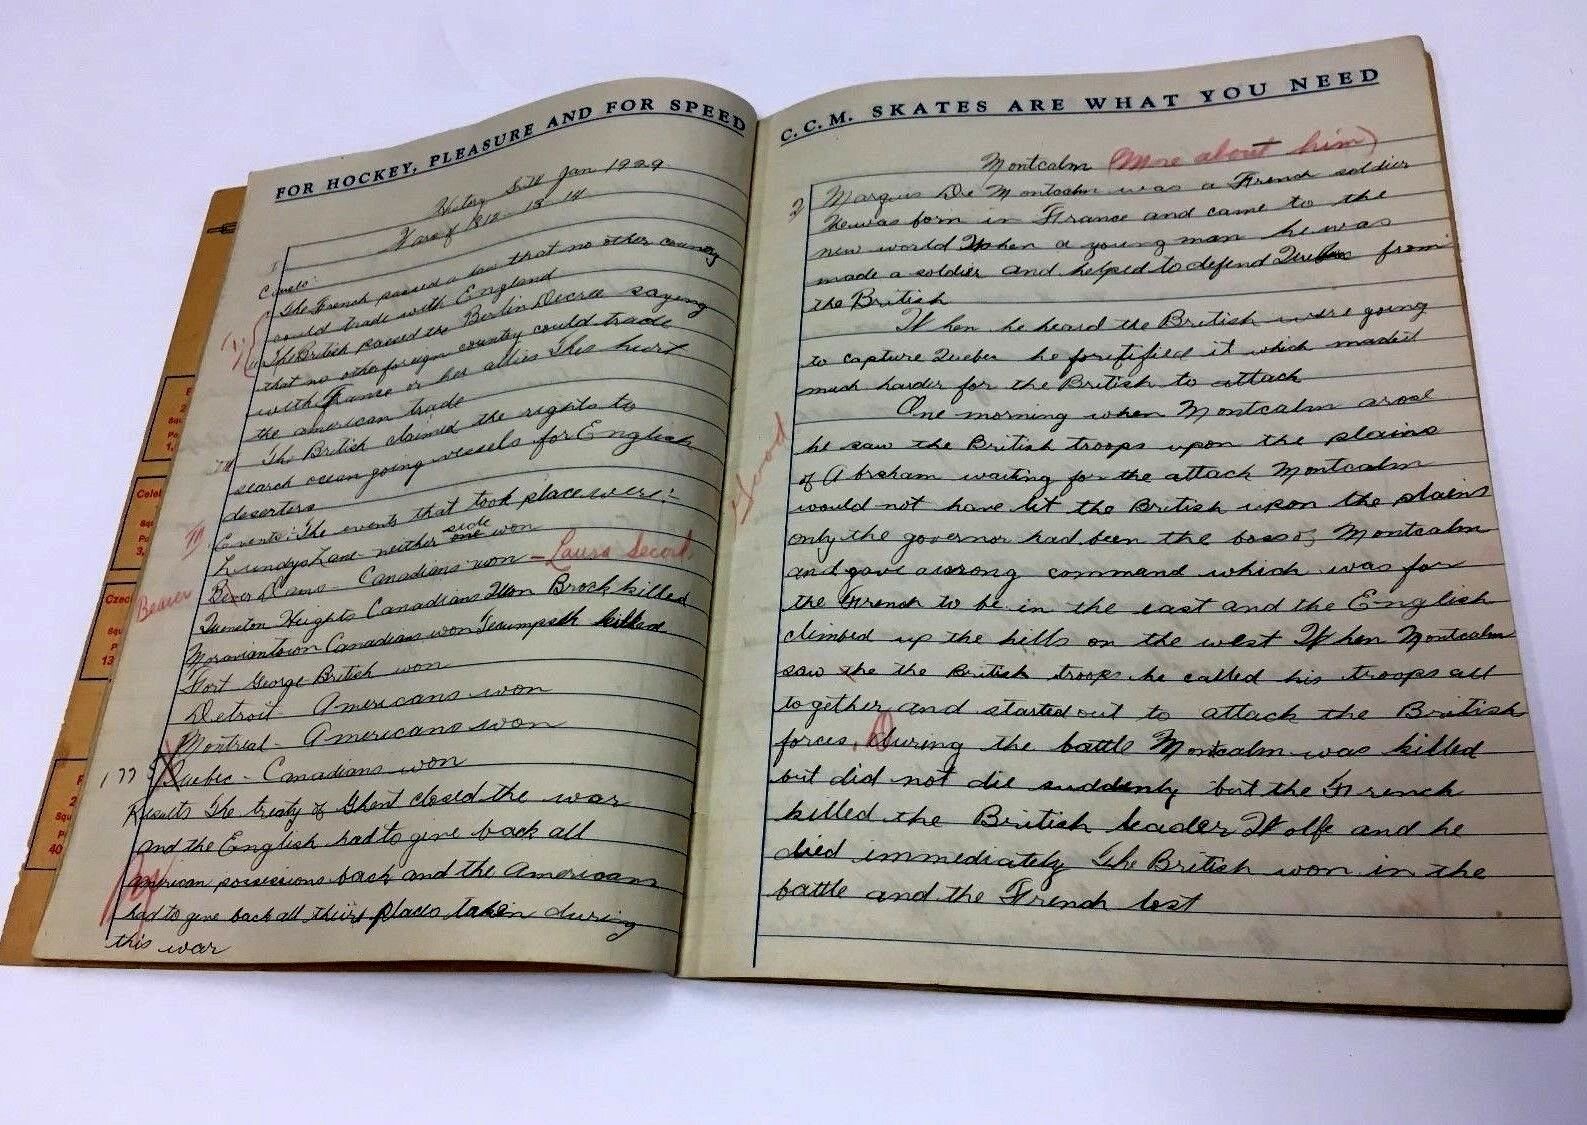 FOR HOCKEY, PLEASURE AND FOR SPEED
Jan 1929
War of 1812 - 13 14
I
The French passed a law that no other country
could trade with England
The British passed the Berlin Decree saying
that no other foreign country could trade
with France or her allies This hurt
the american trade
The British claimed the rights to
search ocean going vessels for English
deserters
Events: The events that took place were:-
side
Lundys Lane - neither one won
Beaver Dams - Canadians won - Laura Secord
Queenston Heights Canadians Won Brock killed
Moraviantown Canadians won Tecumpseth killed
Fort George British won
Detroit - Americans won
Montreal - Americans won
1775 Quebec - Canadians won
Results The treaty of Ghent closed the war
and the English had to give back all
american possessions back and the Americans
had to give back all their places taken during
this war
C.C.M. SKATES ARE WHAT YOU NEED
Montcalm (More about him)
2 Marquis De Montcalm was a French soldier
He was born in France and came to the
new world When a young man he was
made a soldier and helped to defend Quebec from
the British
When he heard the British were going
to capture Quebec he forifified it which madeit
much harder for the British to attack
One morning when Montcalm arose
he saw the British troops upon the plains
Good
of Abraham waiting for the attack Montcalm
would not have let the British upon the plains
only the governor had been the boss of Montcalm
and gave a wrong command which was for
the French to be in the east and the English
climbed up the hills on the west When Montcalm
saw the the British troops he called his troops all
together and started out to attack the British
forces. During the battle Montcalm was killed
but did not die suddenly but the French
killed the British leader Wolfe and he
died immediately The British won in the
battle and the French lost